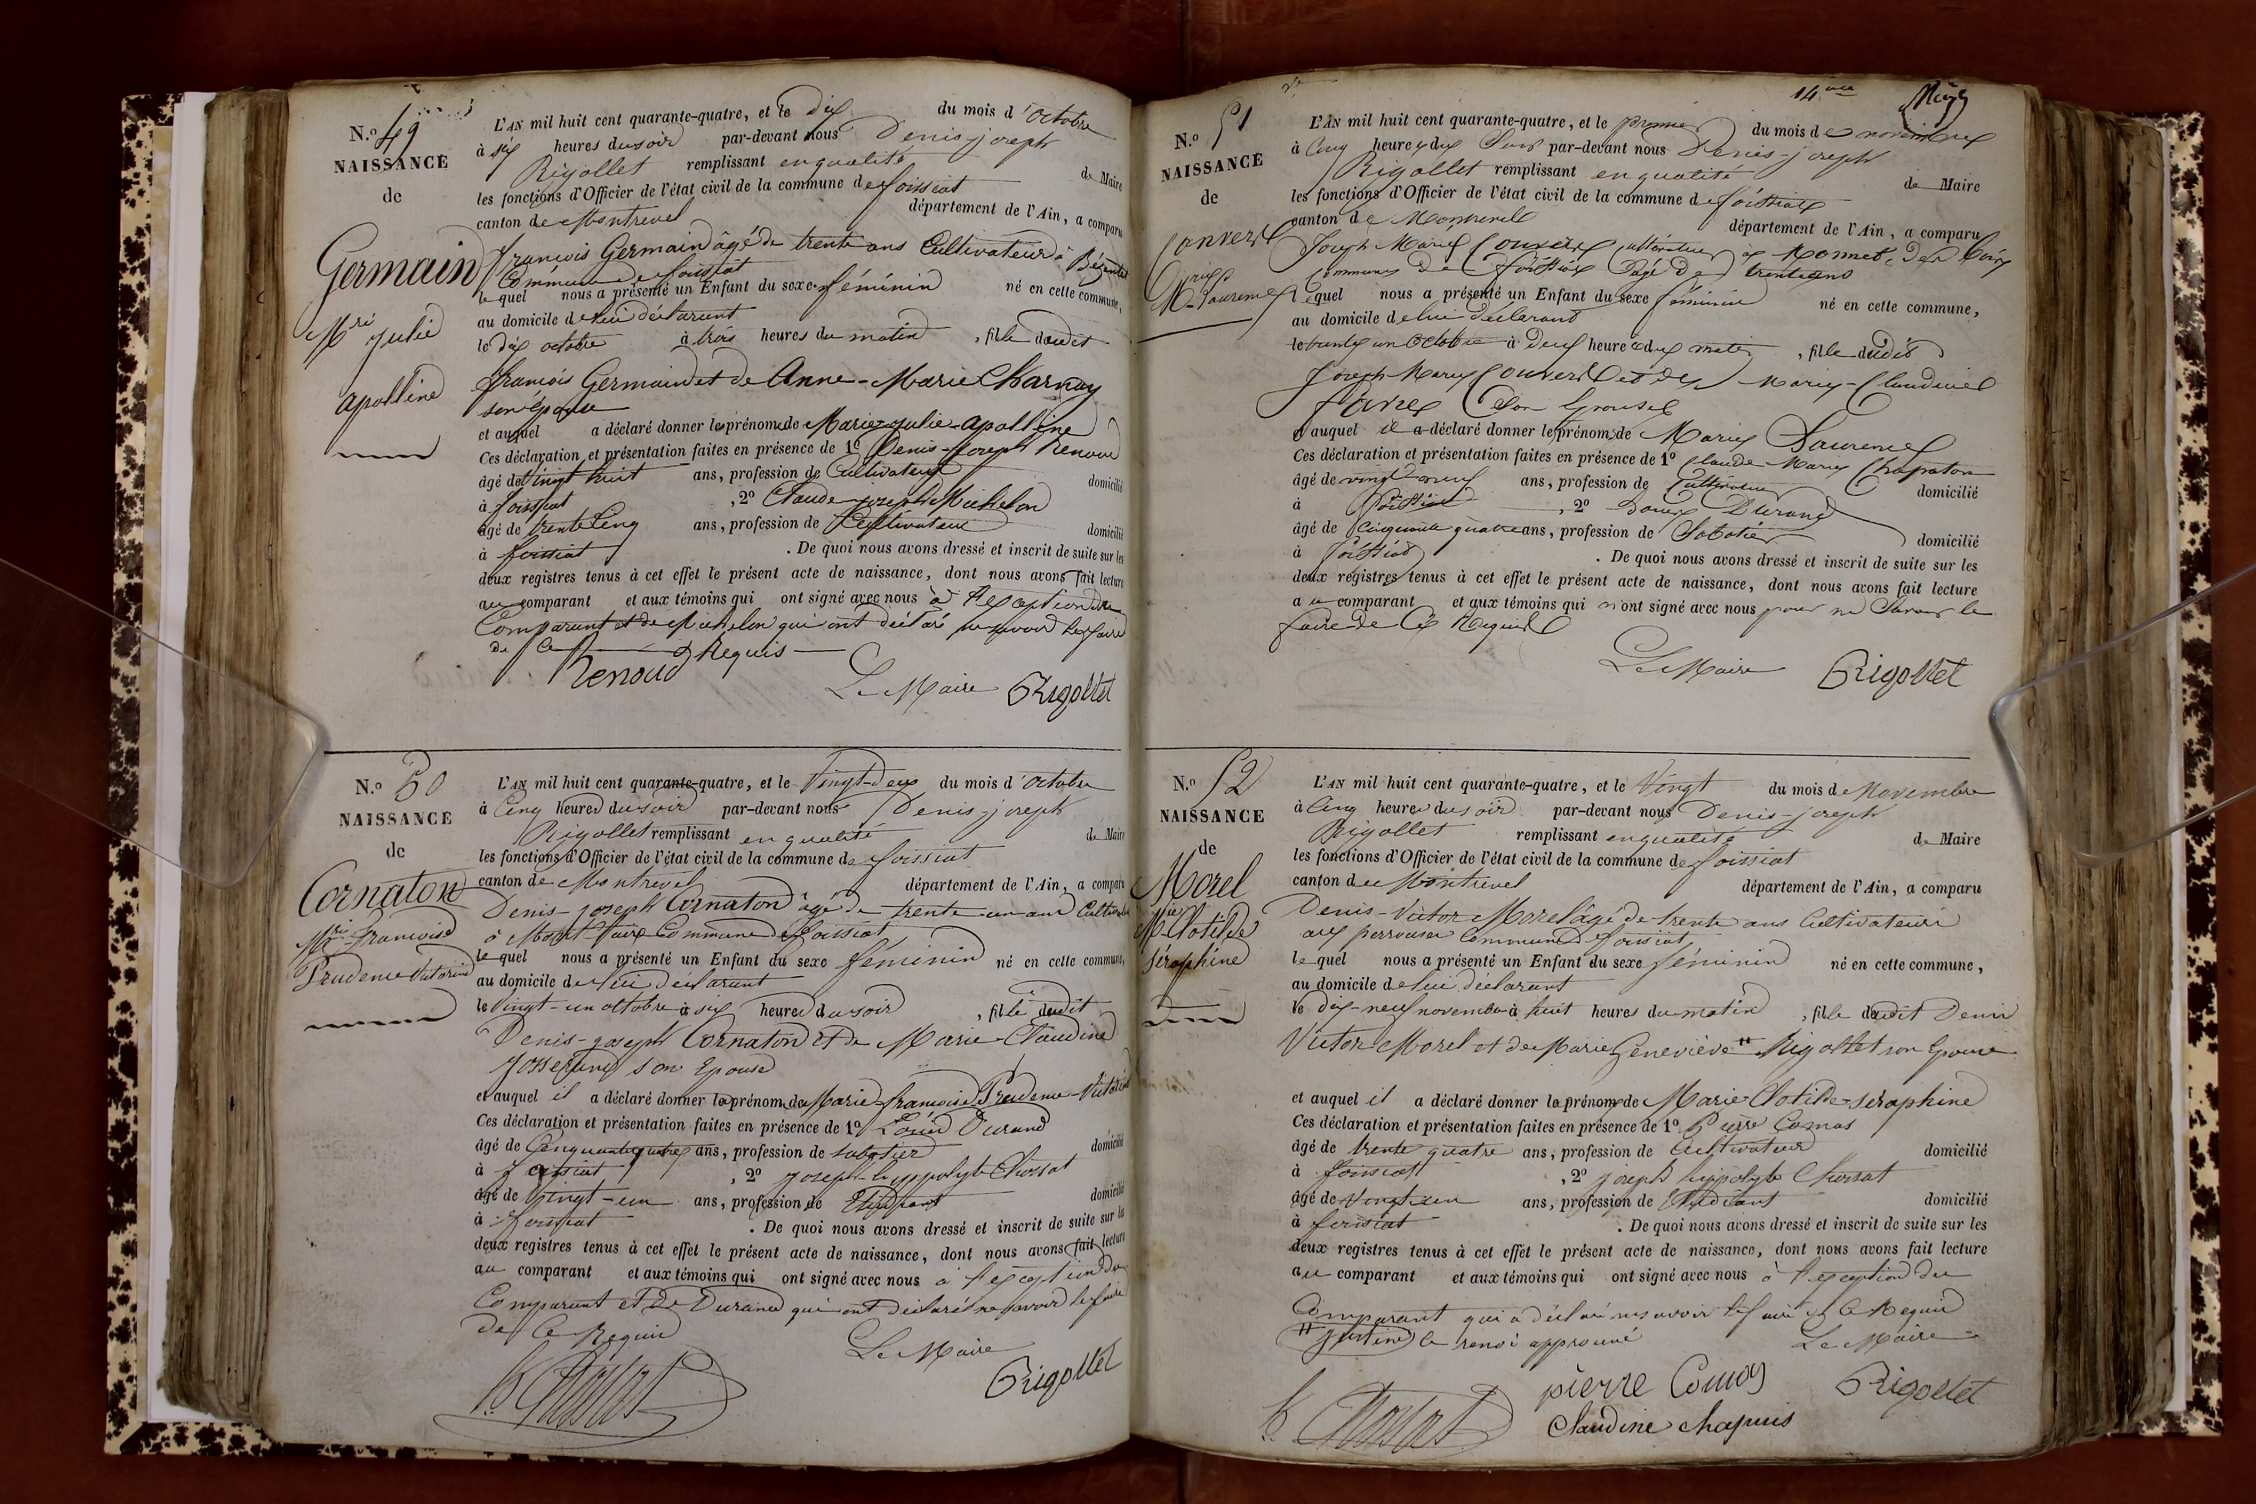 N.o 49
NAISSANCE
de
Germain
Mrie julie
apolline
L'AN mil huit cent quarante-quatre, et le dix du mois d'octobre
à six heures du soir par-devant nous Denis-joseph
Rigollet remplissant en qualité de Maire
les fonctions d'Officier de l'état civil de la commune de foissiat
canton de Montrevel département de l'Ain, a comparu
françois Germain âgé de trente ans Cultivateur à
Commune de foissiat
lequel nous a présenté un Enfant du sexe féminin né en cette commune,
au domicile de lui déclarant
le dix octobre à trois heures du matin, fille dudit
françois Germain et de Anne-Marie Charnay
son épouse
et auquel a déclaré donner les prénoms de Marie-julie-apolline
Ces déclaration et présentation faites en présence de 1o Denis-joseph Renoud
âgé de vingt huit ans, profession de Cultivateur domicilié
à foissiat, 2o Claude-joseph Michelon
âgé de trente cinq ans, profession de Cultivateur domicilié
à foissiat. De quoi nous avons dressé et inscrit de suite sur les
deux registres tenus à cet effet le présent acte de naissance, dont nous avons fait lecture
au comparant et aux témoins qui ont signé avec nous à l'exception du
Comparant et de Michelon qui ont déclaré ne savoir le faire
de ce Requis
Renoud
Le Maire Rigollet
N.o 50
NAISSANCE
de
Cornaton
Mrie françoise
Prudence Victorine
L'AN mil huit cent quarante-quatre, et le Vingt-Deux du mois d'octobre
à Cinq heures du soir par-devant nous Denis-joseph
Rigollet remplissant en qualité de Maire
les fonctions d'Officier de l'état civil de la commune de foissiat
canton de Montrevel département de l'Ain, a comparu
Denis-joseph Cornaton âgé de trente un ans Cultivateur
à Commune de foissiat
lequel nous a présenté un Enfant du sexe féminin né en cette commune,
au domicile de lui déclarant
le vingt-un octobre à six heures du soir, fille dudit
Denis-joseph Cornaton et de Marie-Claudine
Josserand son Epouse
et auquel il a déclaré donner les prénoms de Marie-françoise Prudence-Victorine
Ces déclaration et présentation faites en présence de 1o Louis Durand
âgé de Cinquante quatre ans, profession de sabotier domicilié
à foissiat, 2o joseph-hyppolyte Chossat
âgé de vingt-un ans, profession de Etudiant domicilié
à foissiat. De quoi nous avons dressé et inscrit de suite sur les
deux registres tenus à cet effet le présent acte de naissance, dont nous avons fait lecture
au comparant et aux témoins qui ont signé avec nous à l'exception du
Comparant et de Durand qui ont déclaré ne savoir le faire
de ce Requis
Le Maire
h. Chossat Rigollet
14me
N.o 51
NAISSANCE
de
Convert
Marie
Laurence
L'AN mil huit cent quarante-quatre, et le premier du mois de novembre
à Cinq heures du Soir par-devant nous Denis-joseph
Rigollet remplissant en qualité de Maire
les fonctions d'Officier de l'état civil de la commune de foissiat
canton de Montrevel département de l'Ain, a comparu
Joseph Marie Convert Cultivateur à
Commune de foissiat âgé de trente ans
lequel nous a présenté un Enfant du sexe féminin né en cette commune,
au domicile de lui déclarant
le trente un octobre à Deux heures du matin, fille dudit
Joseph Marie Convert et de Marie-Claudine
favre Son Epouse
et auquel il a déclaré donner les prénoms de Marie Laurence
Ces déclaration et présentation faites en présence de 1o Claude-Marie Chapaton
âgé de vingt neuf ans, profession de Cultivateur domicilié
à foissiat, 2o Louis Durand
âgé de Cinquante quatre ans, profession de Sabotier domicilié
à foissiat. De quoi nous avons dressé et inscrit de suite sur les
deux registres tenus à cet effet le présent acte de naissance, dont nous avons fait lecture
au comparant et aux témoins qui n'ont signé avec nous pour ne Savoir le
faire de ce Requis
Le Maire Rigollet
N.o 52
NAISSANCE
de
Morel
Mrie Clotilde
séraphine
L'AN mil huit cent quarante-quatre, et le Vingt du mois de Novembre
à Cinq heures du soir par-devant nous Denis-joseph
Rigollet remplissant en qualité de Maire
les fonctions d'Officier de l'état civil de la commune de foissiat
canton de Montrevel département de l'Ain, a comparu
Denis-Victor Morel âgé de trente ans Cultivateur
aux perrouses commune de foissiat
lequel nous a présenté un Enfant du sexe féminin né en cette commune,
au domicile de lui déclarant
le dix-neuf novembre à huit heures du matin, fille dudit Denis
Victor Morel et de Marie Geneviève # Rigollet son Epouse
et auquel il a déclaré donner les prénoms de Marie-Clotilde-séraphine
Ces déclaration et présentation faites en présence de 1o Pierre Comas
âgé de trente quatre ans, profession de Cultivateur domicilié
à foissiat, 2o joseph hyppolyte Chossat
âgé de vingt un ans, profession de Etudiant domicilié
à foissiat. De quoi nous avons dressé et inscrit de suite sur les
deux registres tenus à cet effet le présent acte de naissance, dont nous avons fait lecture
au comparant et aux témoins qui ont signé avec nous à l'exception du
Comparant qui a déclaré ne savoir le faire de ce Requis
# justine le renvoi approuvé Le Maire
h. Chossat pierre Comas Rigollet
Claudine chapuis